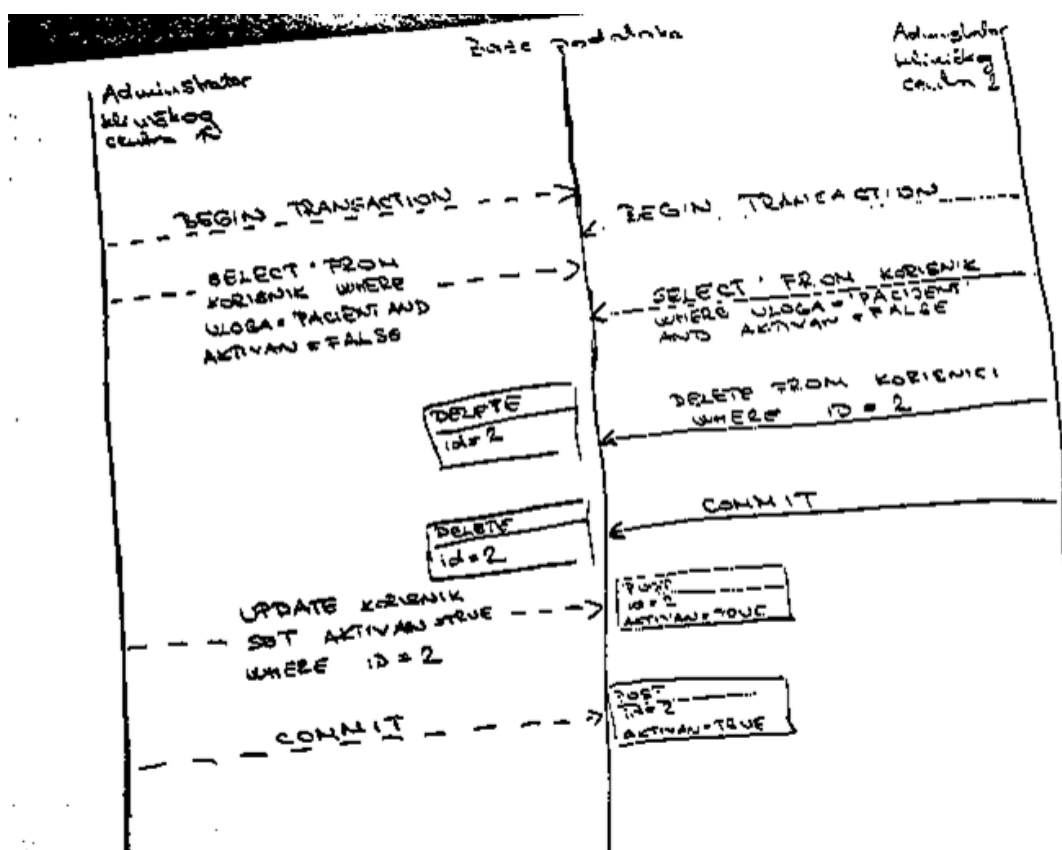 Administrator
kliničkog
centra 1
Baze podataka
Administrator
kliničkog
centra 2
BEGIN TRANSACTION
BEGIN TRANSACTION
SELECT * FROM
KORISNIK WHERE
ULOGA = 'PACIENT AND
AKTIVAN = FALSE
SELECT * FROM KORISNIK
WHERE ULOGA = 'PACIJENT'
AND AKTIVAN = FALSE
DELETE FROM KORISNICI
WHERE ID = 2
DELETE
id = 2
COMMIT
DELETE
id = 2
UPDATE KORISNIK
SET AKTIVAN = TRUE
WHERE ID = 2
POST
id = 2
AKTIVAN = TRUE
COMMIT
POST
id = 2
AKTIVAN = TRUE